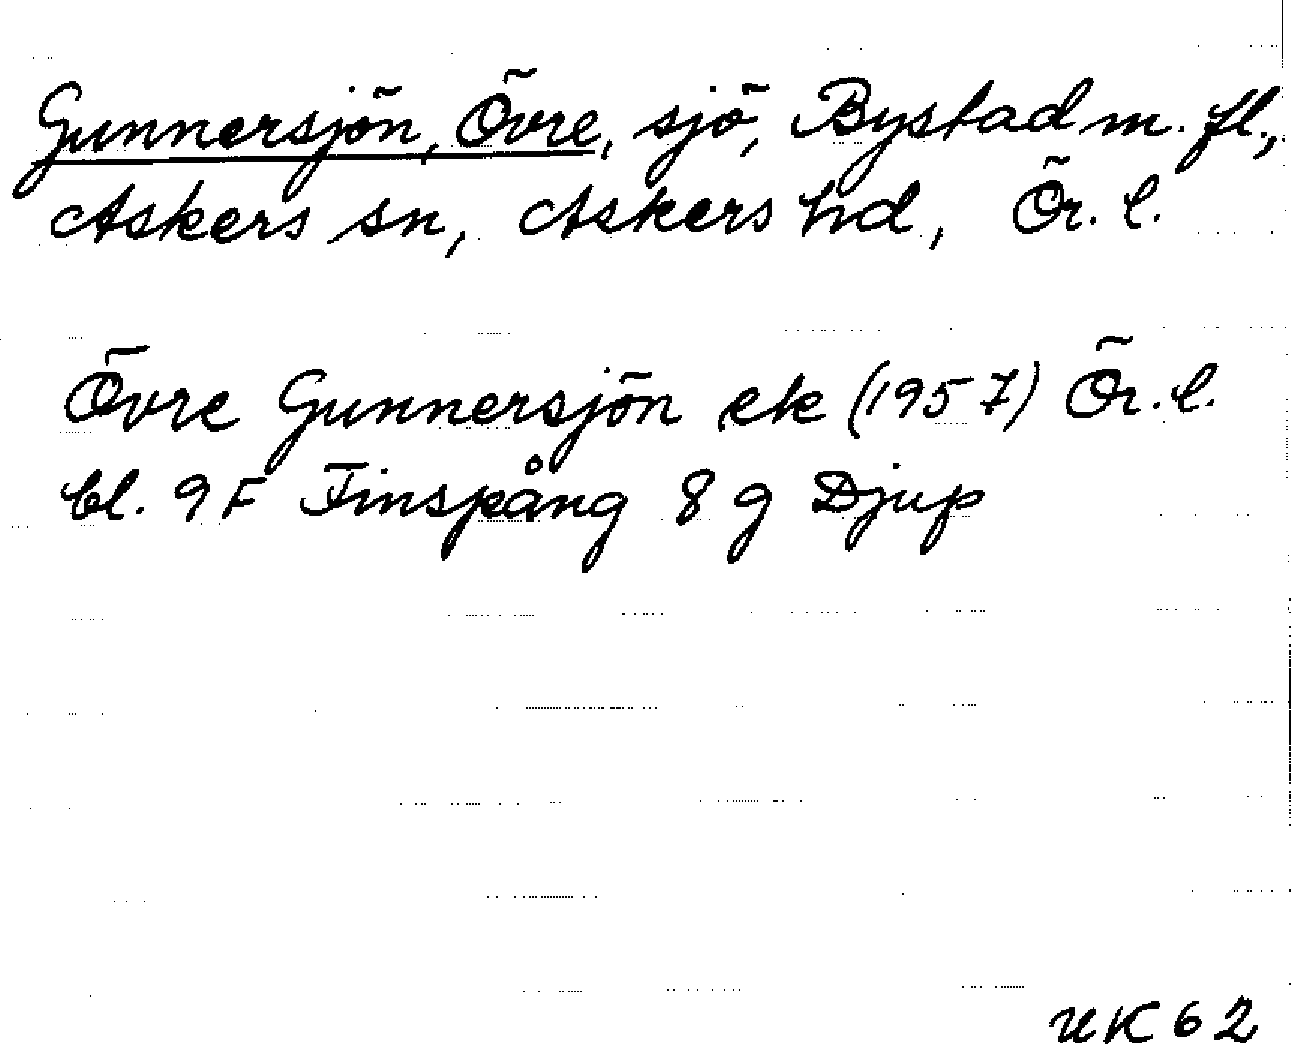 Gunnersjön, Övre, sjö, Bystad m. fl.,
Askers sn, Askers hd, Ör. l.
Övre Gunnersjön ek (1957) Ör. l.
bl. 9 F Finspång 8 g Djup
UK 62